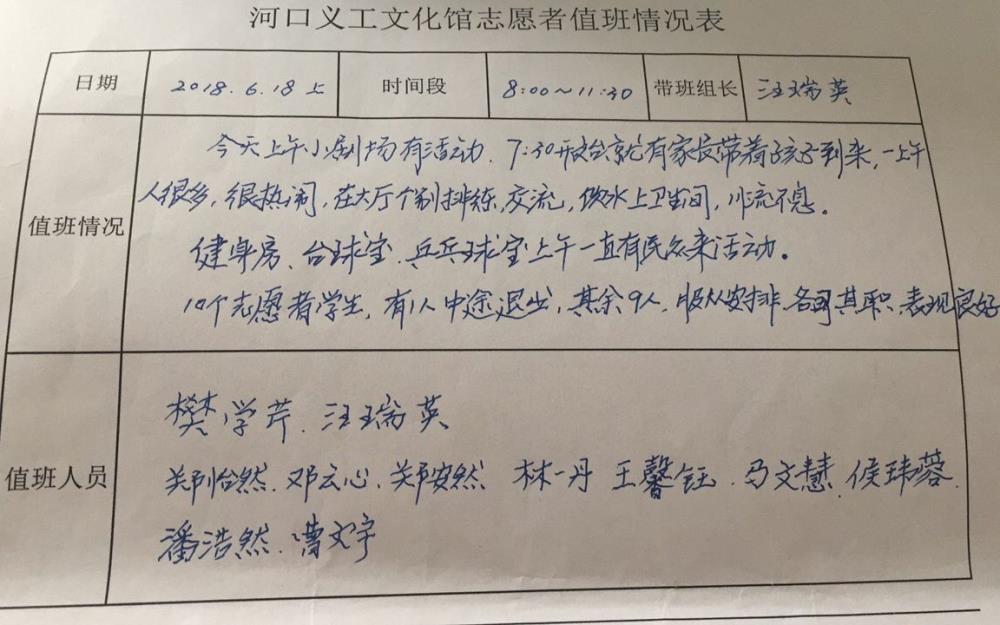 河口义工文化馆志愿者值班情况表
日期 2018.6.18上 时间段 8:00~11:30 带班组长 汪瑞英
值班情况
今天上午小剧场有活动、7:30开始就有家长带着孩子到来,一上午
人很多,很热闹,在大厅个别排练,交流,饮水上卫生间,川流不息。
健身房、台球室、乒乓球室上午一直有民众来活动。
10个志愿者学生,有1人中途退出,其余9人,服从安排、各司其职、表现良好
值班人员
樊学芹、汪瑞英
郑怡然、邓云心、郑安然 林一丹 王馨钰、马文慧、侯玮蓉、
潘浩然、曹文宇